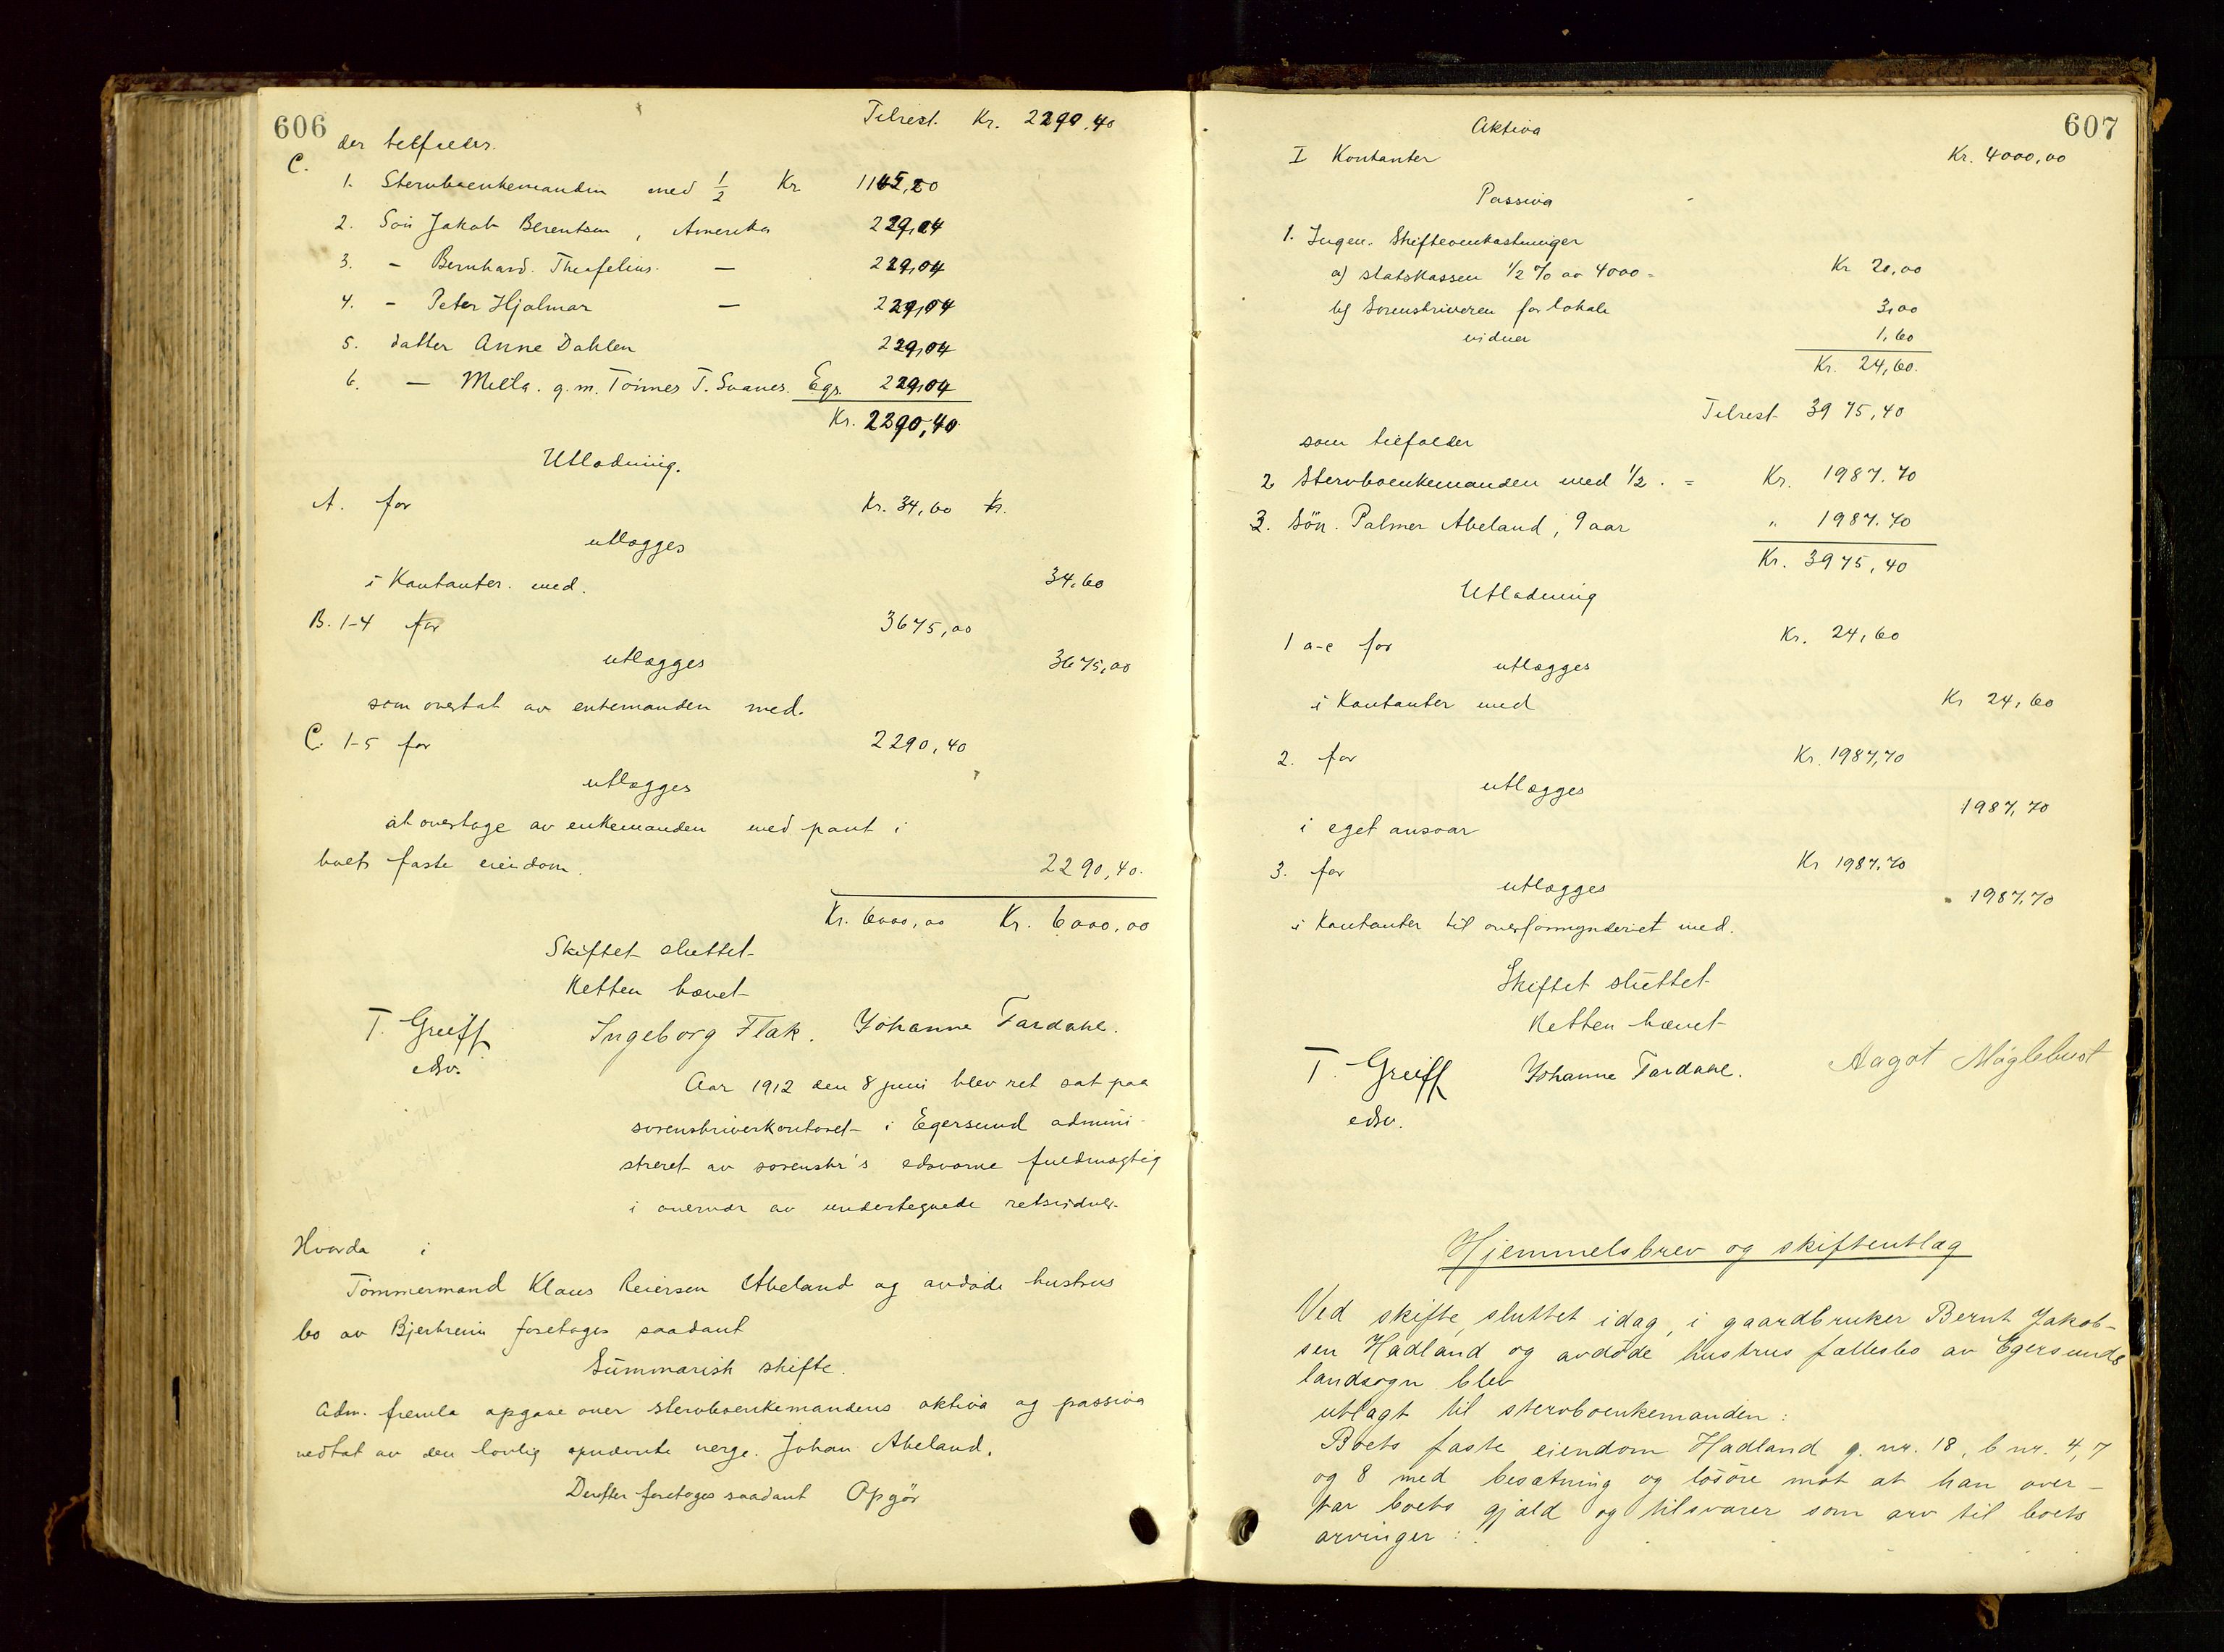 606
Tilrest. Kr. 2290,40
der tilfalder.
C.
1. Stervboenkemanden med 1/2 Kr. 1145,20
2. Søn Jakob Berentsen, Amerika 229,04
3. - Bernhard Theofelius. — 229,04
4. - Peter Hjalmar — 229,04
5. datter Anne Dahlen 229,04
6. — Milla. g.m. Tönnes T. Svanes. Egs. 229,04
Kr. 2290,40
Utlodning.
A. for Kr. 34,60 Kr.
utlægges
i Kontanter. med. 34,60
B. 1-4 for 3675,00
utlægges 3675,00
som overtat av enkemanden med.
C. 1-5 for 2290,40
utlægges
at overtage av enkemanden med pant i
boets faste eiendom. 2290,40.
Kr. 6000,00 Kr. 6000,00
Skiftet sluttet
Retten hævet
T. Greiff Ingeborg Flak. Johanne Tardahl.
edsv.
Aar 1912 den 8 juni blev ret sat paa
sorenskriverkontoret i Egersund admini-
streret av sorenskr's edsvorne fuldmægtig
i overvær av undertegnede retsvidner.
Hvorda i
Tömmermand Klaus Reiersen Abeland og avdöde hustrus
bo av Bjerkreim foretoges saadant
Summarisk skifte.
Adm. fremla opgave over stervboenkemandens aktiva og passiva
vedtat av den lovlig opnævnte verge. Johan Abeland.
Derefter foretoges saadant Opgör
607
Aktiva
I Kontanter Kr. 4000,00
Passiva
1. Ingen. Skifteomkostninger
a) statskassen 1/2 % av 4000 = Kr 20,00
b) Sorenskriveren for lokale 3,00
vidner 1,60
Kr. 24,60.
Tilrest 3975,40
som tilfalder
2 Stervboenkemanden med 1/2. = Kr. 1987.70
3. Sön. Palmer Abeland, 9 aar " 1987.70
Kr. 3975,40
Utlodning
1 a-c for Kr. 24,60
utlægges
i Kontanter med Kr 24,60
2. for Kr. 1987,70
utlægges
1987,70
i eget ansvar
3. for Kr 1987,70
utlægges
1987,70
i Kontanter til overformynderiet med.
Skiftet sluttet
Retten hævet
T. Greiff Johanne Tardahl. Aagot Møglebust
edsv.
Hjemmelsbrev og skifteutlæg
Ved skifte, sluttet idag, i gaardbruker Bernt Jakob-
sen Hadland og avdøde hustrus fællesbo av Egersunds
landsogn blev
utlagt til stervboenkemanden:
Boets faste eiendom Hadland g. nr. 18, b nr. 4, 7
og 8 med besætning og løsøre mot at han over-
tar boets gjæld og tilsvarer som arv til boets
arvinger: